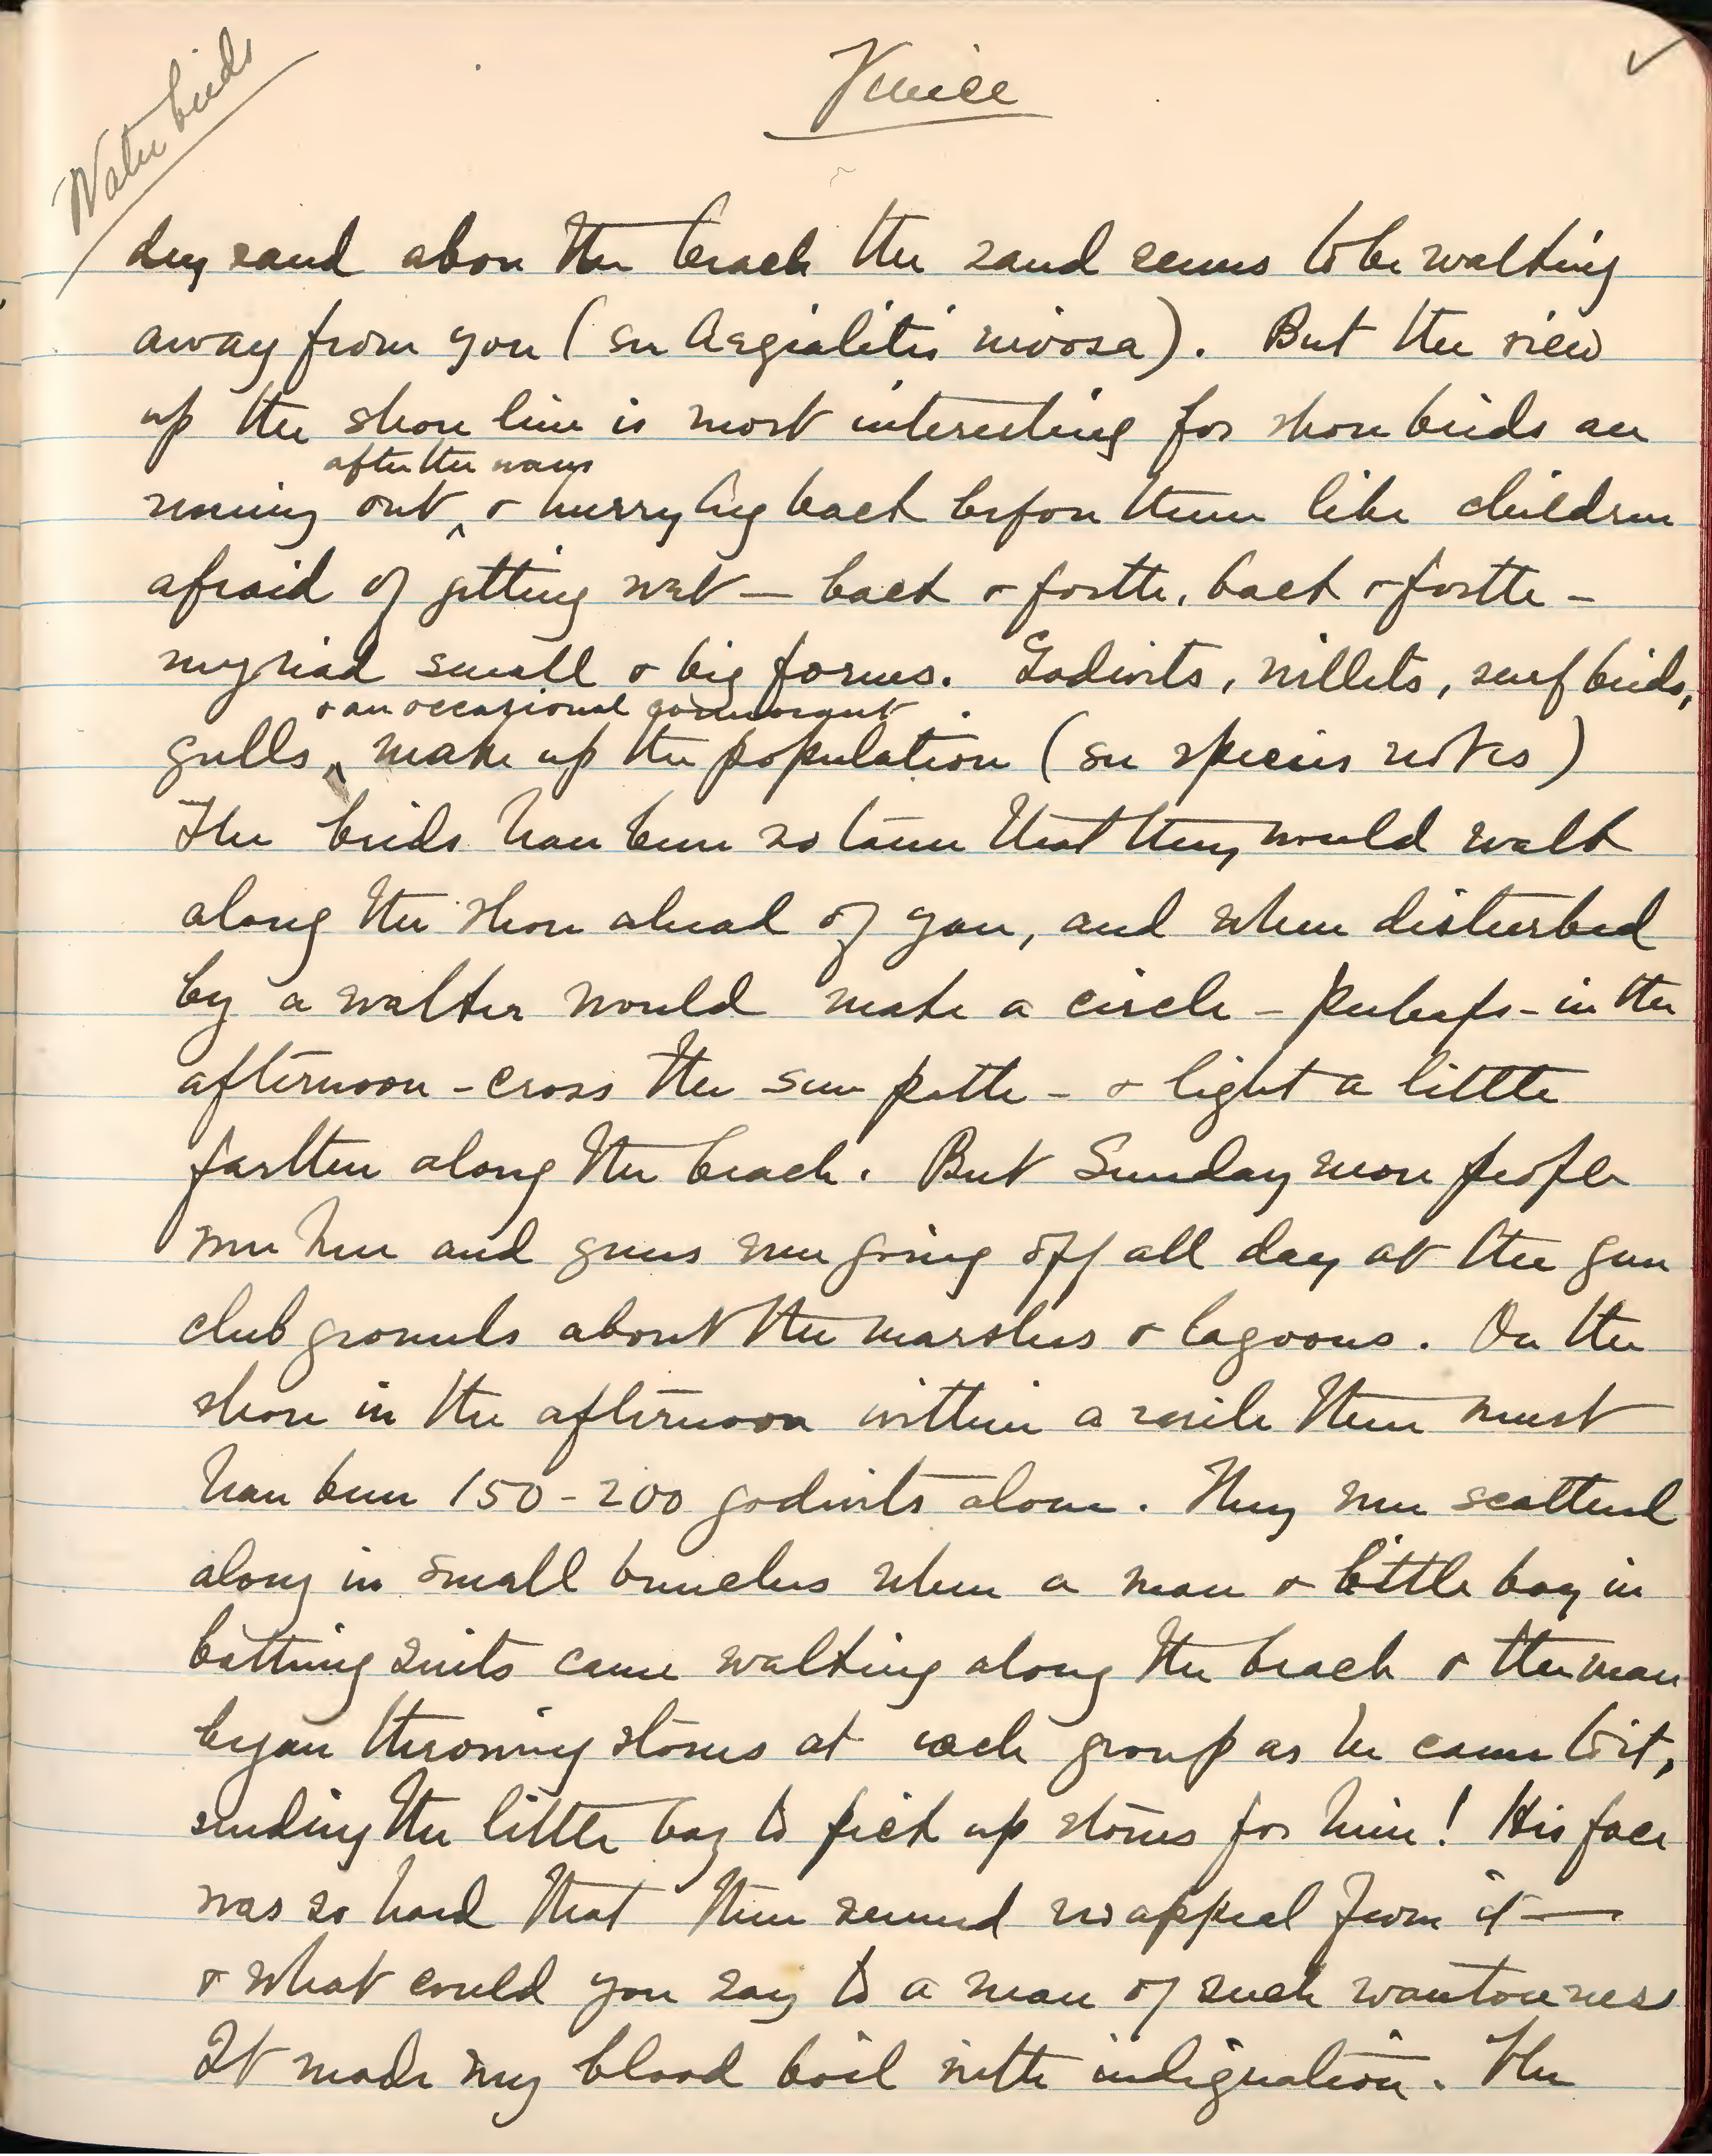 Water birds
Venice
dry sand above the beach the sand seems to be walking
away from you (see Aegialitis nivosa). But the view
up the shore line is most interesting for shore birds are
after the waves
running out ^ & hurrying back before them like children
afraid of getting wet — back & forth, back & forth —
myriad small & big forms. Godwits, willets, surf birds,
& an occasional cormorant
gulls ^ make up the population (see species notes)
The birds have been so tame that they would walk
along the shore ahead of you, and when disturbed
by a walker would make a circle – perhaps – in the
afternoon – cross the sun path – & light a little
farther along the beach. But Sunday more people
were here and guns were going off all day at the gun
club grounds about the marshes & lagoons. On the
shore in the afternoon within a mile there must
have been 150-200 godwits alone. They were scattered
along in small bunches when a man & little boy in
bathing suits came walking along the beach & the man
began throwing stones at each group as he came to it,
sending the little boy to pick up stones for him! His face
was so hard that there seemed no appeal from it —
& what could you say to a man of such wantonness
It made my blood boil with indignation. The